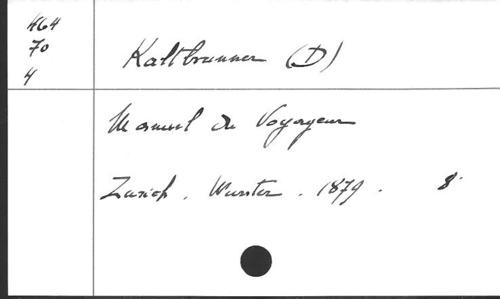 464
70
4
Kaltbrunner (D)
Manuel du Voyageur
Zurich. Wurster. 1879. 8°